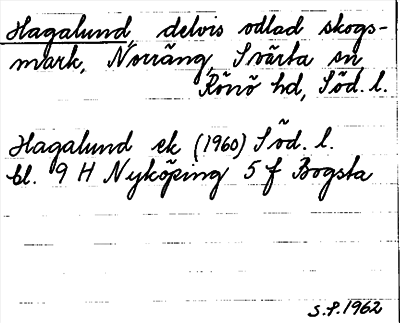 Hagalund, delvis odlad skogs-
mark, Norräng, Svärta sn
Rönö hd, Söd. l.
Hagalund ek (1960) Söd. l.
bl. 9 H Nyköping 5 f Bogsta
S.P. 1962